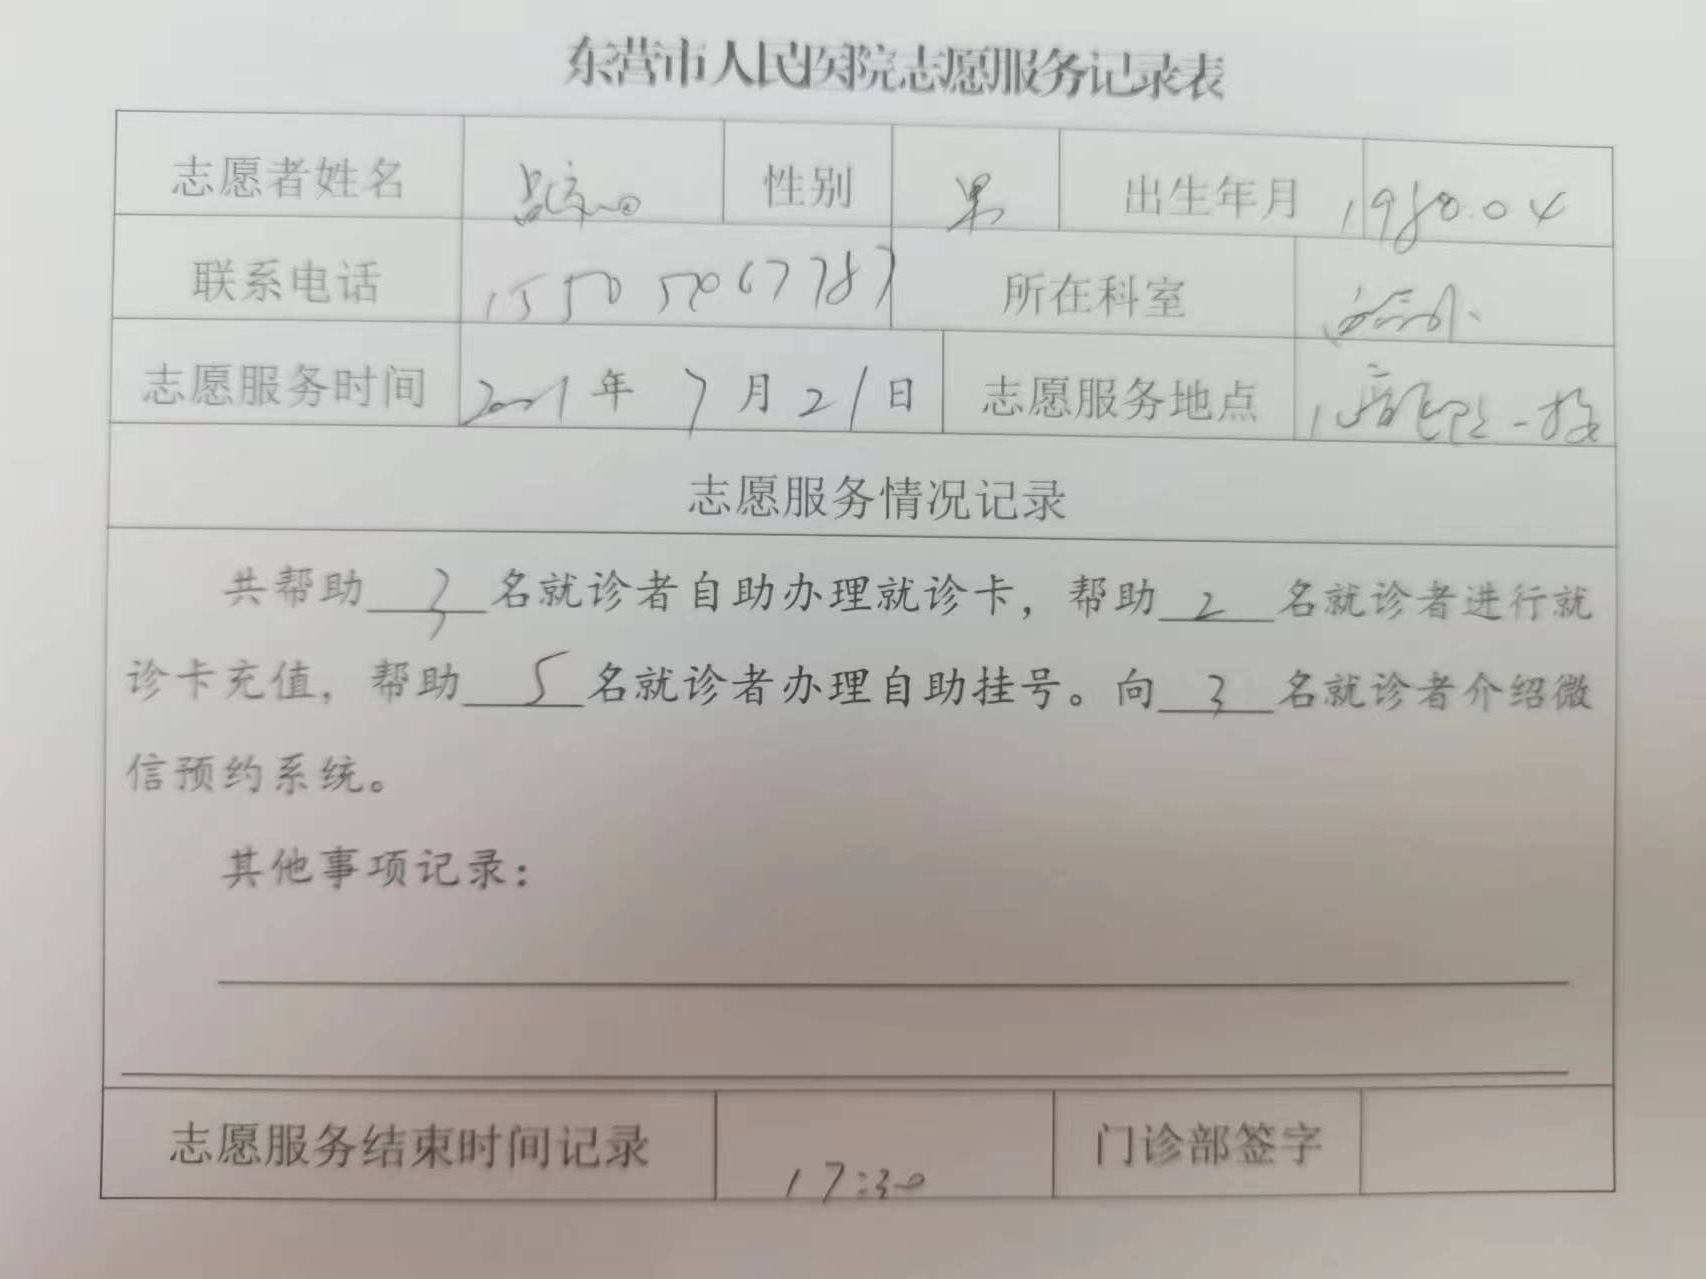 东营市人民医院志愿服务记录表
志愿者姓名 性别 男 出生年月 1980.04
联系电话 15505067787 所在科室
志愿服务时间 2021年7月21日 志愿服务地点 一楼
志愿服务情况记录
共帮助 3 名就诊者自助办理就诊卡，帮助 2 名就诊者进行就
诊卡充值，帮助 5 名就诊者办理自助挂号。向 3 名就诊者介绍微
信预约系统。
其他事项记录：
志愿服务结束时间记录 17:30 门诊部签字